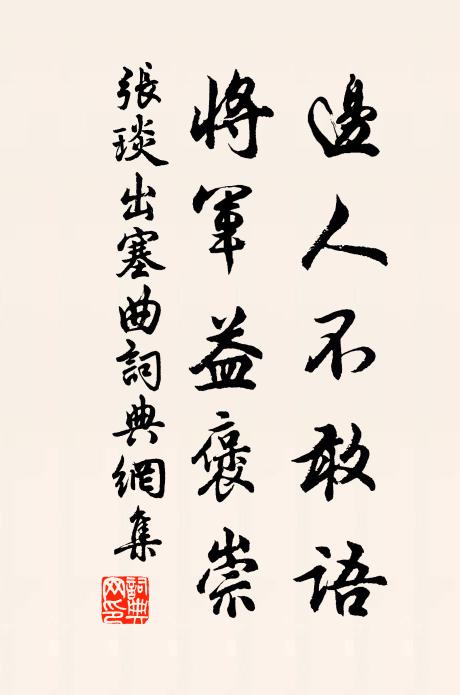 邊人不敢語
將軍益褒崇
張琰出塞曲詞典網集
詞典
网印